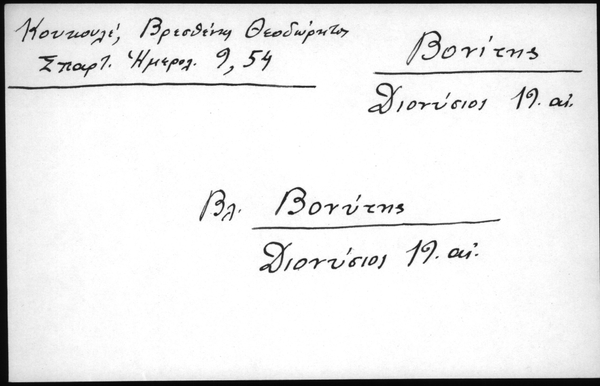 Κουκουλέ, Βρεσθένης Θεοδώρητος
Σπαρτ. Ἡμερολ. 9, 54
Βονίτης
Διονύσιος 19. αἰ.
Βλ. Βονύτης
Διονύσιος 19. αἰ.